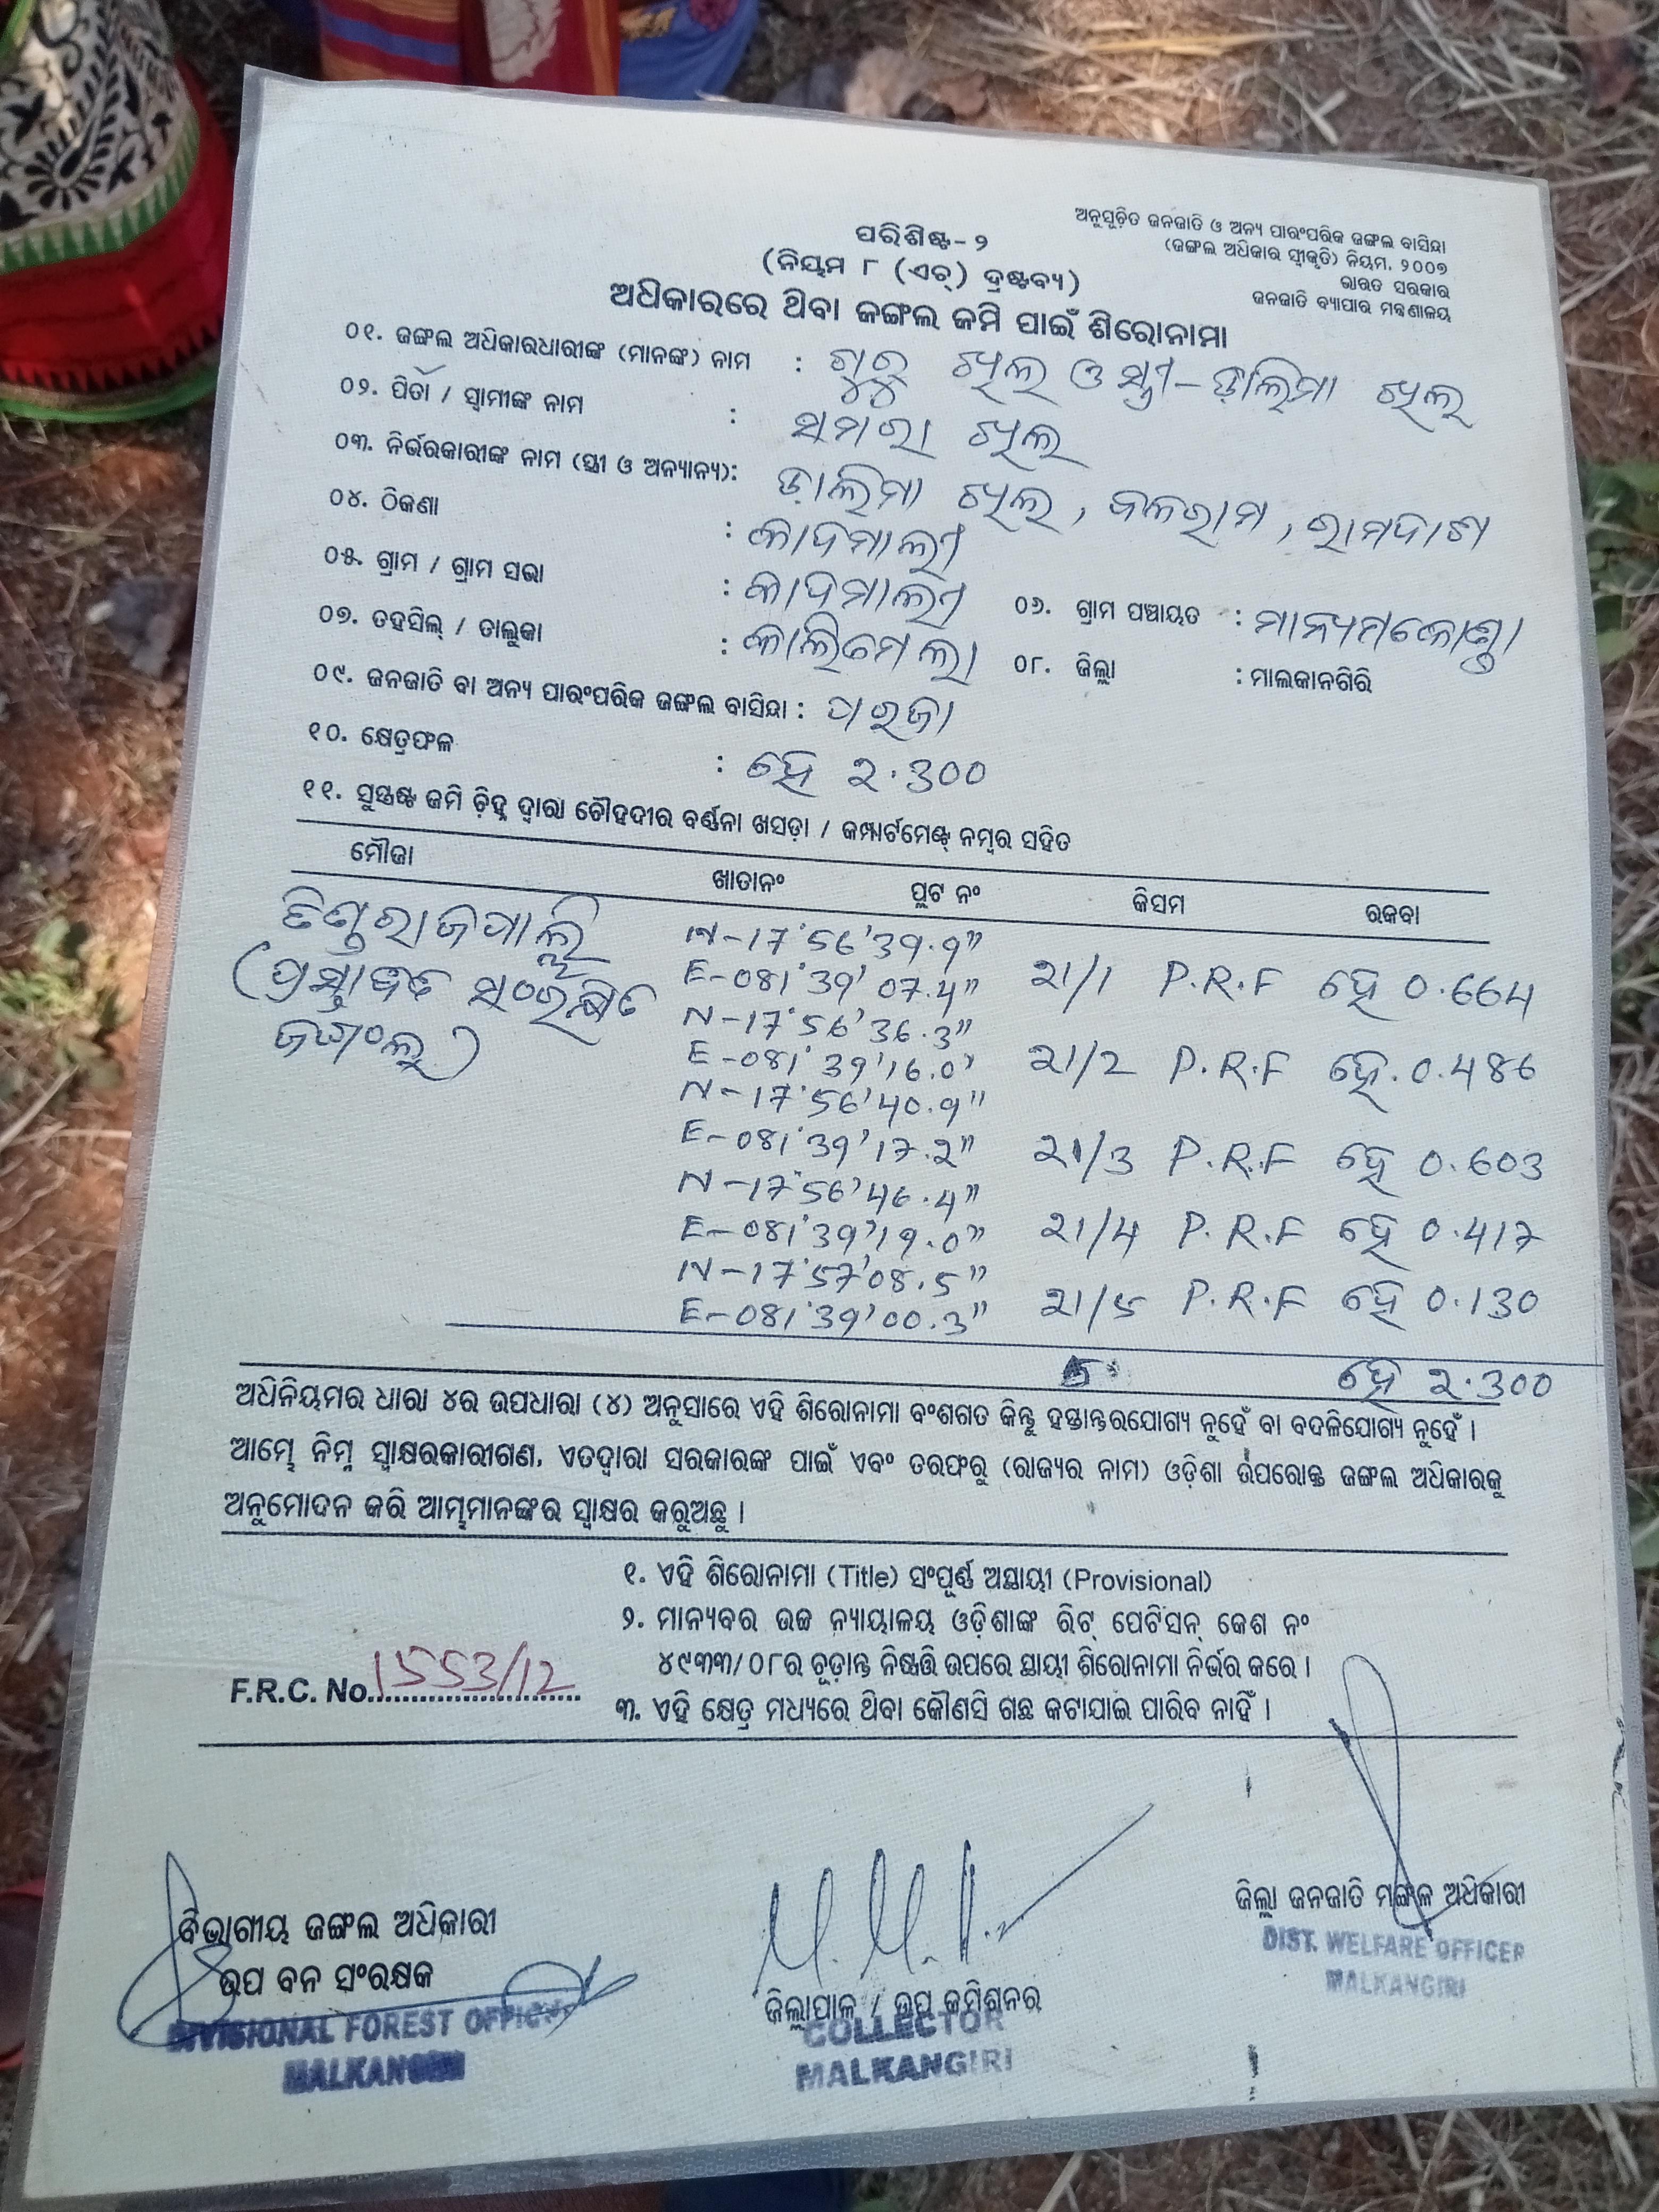 ଅନୁସୂଚିତ ଜନଜାତି ଓ ଅନ୍ୟ ପାରଂପରିକ ଜଙ୍ଗଲ ବାସିନ୍ଦା
(ଜଙ୍ଗଲ ଅଧିକାର ସ୍ୱୀକୃତି) ନିୟମ, ୨୦୦୭
ଭାରତ ସରକାର
ଜନଜାତି ବ୍ୟାପାର ମନ୍ତ୍ରଣାଳୟ
ପରିଶିଷ୍ଟ-୨
(ନିୟମ ୮ (ଏଚ୍) ଦ୍ରଷ୍ଟବ୍ୟ)
ଅଧିକାରରେ ଥିବା ଜଙ୍ଗଲ ଜମି ପାଇଁ ଶିରୋନାମା
୦୧. ଜଙ୍ଗଲ ଅଧିକାରଧାରୀଙ୍କ (ମାନଙ୍କ) ନାମ : ଗୁରୁ ଖିଲ ଓ ସ୍ତ୍ରୀ - ଡ଼ାଲିମା ଖିଲ
୦୨. ପିତା / ସ୍ୱାମୀଙ୍କ ନାମ : ସମରା ଖିଲ
୦୩. ନିର୍ଭରକାରୀଙ୍କ ନାମ (ସ୍ତ୍ରୀ ଓ ଅନ୍ୟାନ୍ୟ): ଡ଼ାଲିମା ଖିଲ, ବଳରାମ, ରାମଦାଶ
୦୪. ଠିକଣା : କାଦମାଲୀ
୦୫. ଗ୍ରାମ / ଗ୍ରାମ ସଭା : କାଦମାଲୀ ୦୬. ଗ୍ରାମ ପଞ୍ଚାୟତ : ମାନ୍ୟମକୋଣ୍ଡା
୦୭. ତହସିଲ୍ / ତାଲୁକା : କାଲିମେଲା ୦୮. ଜିଲ୍ଲା : ମାଲକାନଗିରି
୦୯. ଜନଜାତି ବା ଅନ୍ୟ ପାରଂପରିକ ଜଙ୍ଗଲ ବାସିନ୍ଦା : ପରଜା
୧୦. କ୍ଷେତ୍ରଫଳ : ହେ ୨.300
୧୧. ସୁସ୍ପଷ୍ଟ ଜମି ଚିହ୍ନ ଦ୍ୱାରା ଚୌହଦୀର ବର୍ଣ୍ଣନା ଖସଡ଼ା / କମ୍ପାର୍ଟମେଣ୍ଟ୍ ନମ୍ବର ସହିତ
ମୌଜା ଖାତାନଂ ପ୍ଲଟ ନଂ କିସମ ରକବା
ତିଣ୍ଡରାଜପାଲ୍ଲି
(ପ୍ରସ୍ତାବିତ ସଂରକ୍ଷିତ
ଜଙ୍ଗଲ)
N-17°56'39.9"
E-081°39'07.4" 21/1 P.R.F ହେ 0.664
N-17°56'36.3"
E-081°39'16.0" 21/2 P.R.F ହେ. 0.486
N-17°56'40.9"
E-081°39'17.2" 21/3 P.R.F ହେ 0.603
N-17°56'46.4"
E-081°39'19.0" 21/4 P.R.F ହେ 0.417
N-17°57'08.5"
E-081°39'00.3" 21/5 P.R.F ହେ 0.130
5 ହେ ୨.300
ଅଧିନିୟମର ଧାରା ୪ର ଉପଧାରା (୪) ଅନୁସାରେ ଏହି ଶିରୋନାମା ବଂଶଗତ କିନ୍ତୁ ହସ୍ତାନ୍ତରଯୋଗ୍ୟ ନୁହେଁ ବା ବଦଳିଯୋଗ୍ୟ ନୁହେଁ ।
ଆମ୍ଭେ ନିମ୍ନ ସ୍ୱାକ୍ଷରକାରୀଗଣ, ଏତଦ୍ୱାରା ସରକାରଙ୍କ ପାଇଁ ଏବଂ ତରଫରୁ (ରାଜ୍ୟର ନାମ) ଓଡ଼ିଶା ଉପରୋକ୍ତ ଜଙ୍ଗଲ ଅଧିକାରକୁ
ଅନୁମୋଦନ କରି ଆମ୍ଭମାନଙ୍କର ସ୍ୱାକ୍ଷର କରୁଅଛୁ ।
୧. ଏହି ଶିରୋନାମା (Title) ସଂପୂର୍ଣ୍ଣ ଅସ୍ଥାୟୀ (Provisional)
୨. ମାନ୍ୟବର ଉଚ୍ଚ ନ୍ୟାୟାଳୟ ଓଡ଼ିଶାଙ୍କ ରିଟ୍ ପେଟିସନ୍ କେଶ ନଂ
୪୯୩୩/୦୮ର ଚୂଡ଼ାନ୍ତ ନିଷ୍ପତ୍ତି ଉପରେ ସ୍ଥାୟୀ ଶିରୋନାମା ନିର୍ଭର କରେ ।
F.R.C. No. 1553/12
୩. ଏହି କ୍ଷେତ୍ର ମଧ୍ୟରେ ଥିବା କୌଣସି ଗଛ କଟାଯାଇ ପାରିବ ନାହିଁ ।
ବିଭାଗୀୟ ଜଙ୍ଗଲ ଅଧିକାରୀ
ଉପ ବନ ସଂରକ୍ଷକ
DIVISIONAL FOREST OFFICER
MALKANGIRI
ଜିଲ୍ଲାପାଳ / ଉପ କମିଶନର
COLLECTOR
MALKANGIRI
ଜିଲ୍ଲା ଜନଜାତି ମଙ୍ଗଳ ଅଧିକାରୀ
DIST. WELFARE OFFICER
MALKANGIRI